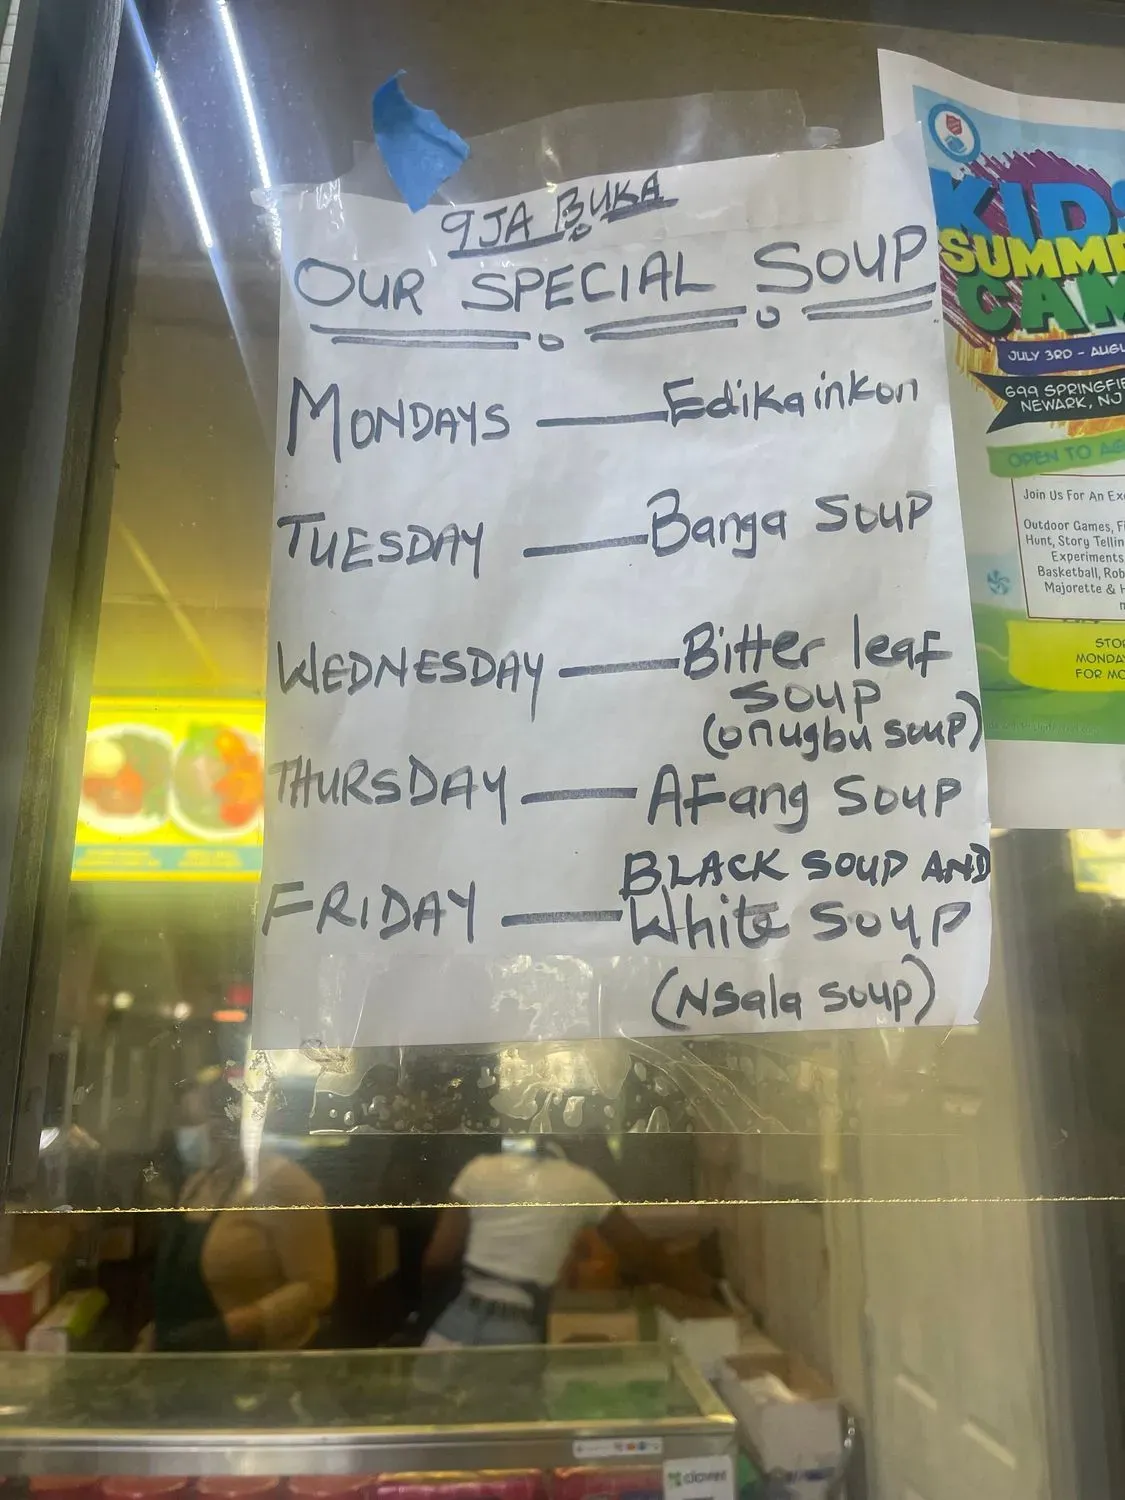 9JA BUKA
OUR SPECIAL SOUP
MONDAYS — Edikainkon
TUESDAY — Banga SOUP
WEDNESDAY — Bitter leaf
SOUP
(onugbu soup)
THURSDAY — AFang SOUP
BLACK SOUP AND
FRIDAY — White SOUP
(Nsala soup)
KIDS
SUMME
CAM
JULY 3RD - AUGU
699 SPRINGFIE
NEWARK, NJ
OPEN TO AG
Join Us For An Ex
Outdoor Games, Fi
Hunt, Story Tellin
Experiments
Basketball, Rob
Majorette & H
STO
MONDA
FOR MO
clover